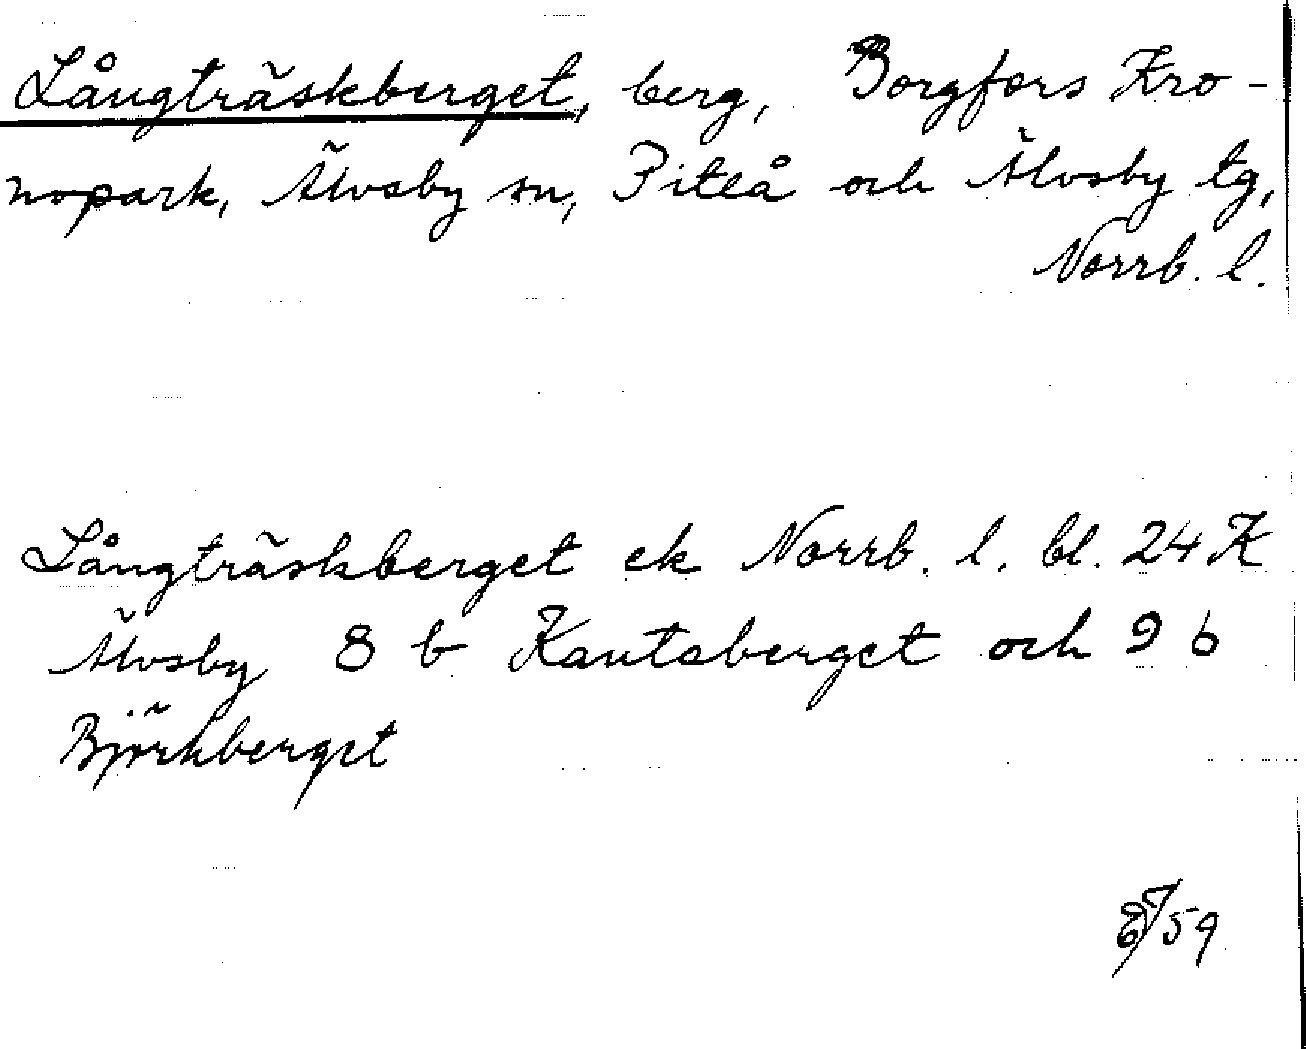 Långträskberget, berg, Borgfors Kro-
nopark, Älvsby sn, Piteå och Älvsby tg,
Norrb. l.
Långträskberget ek Norrb. l. bl. 24 K
Älvsby 8 b Kautaberget och 9 b
Björkberget
59